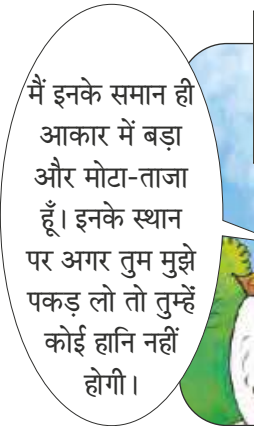 मैं इनके समान ही
आकार में बड़ा
और मोटा-ताजा
हूँ। इनके स्थान
पर अगर तुम मुझे
पकड़ लो तो तुम्हें
कोई हानि नहीं
होगी।